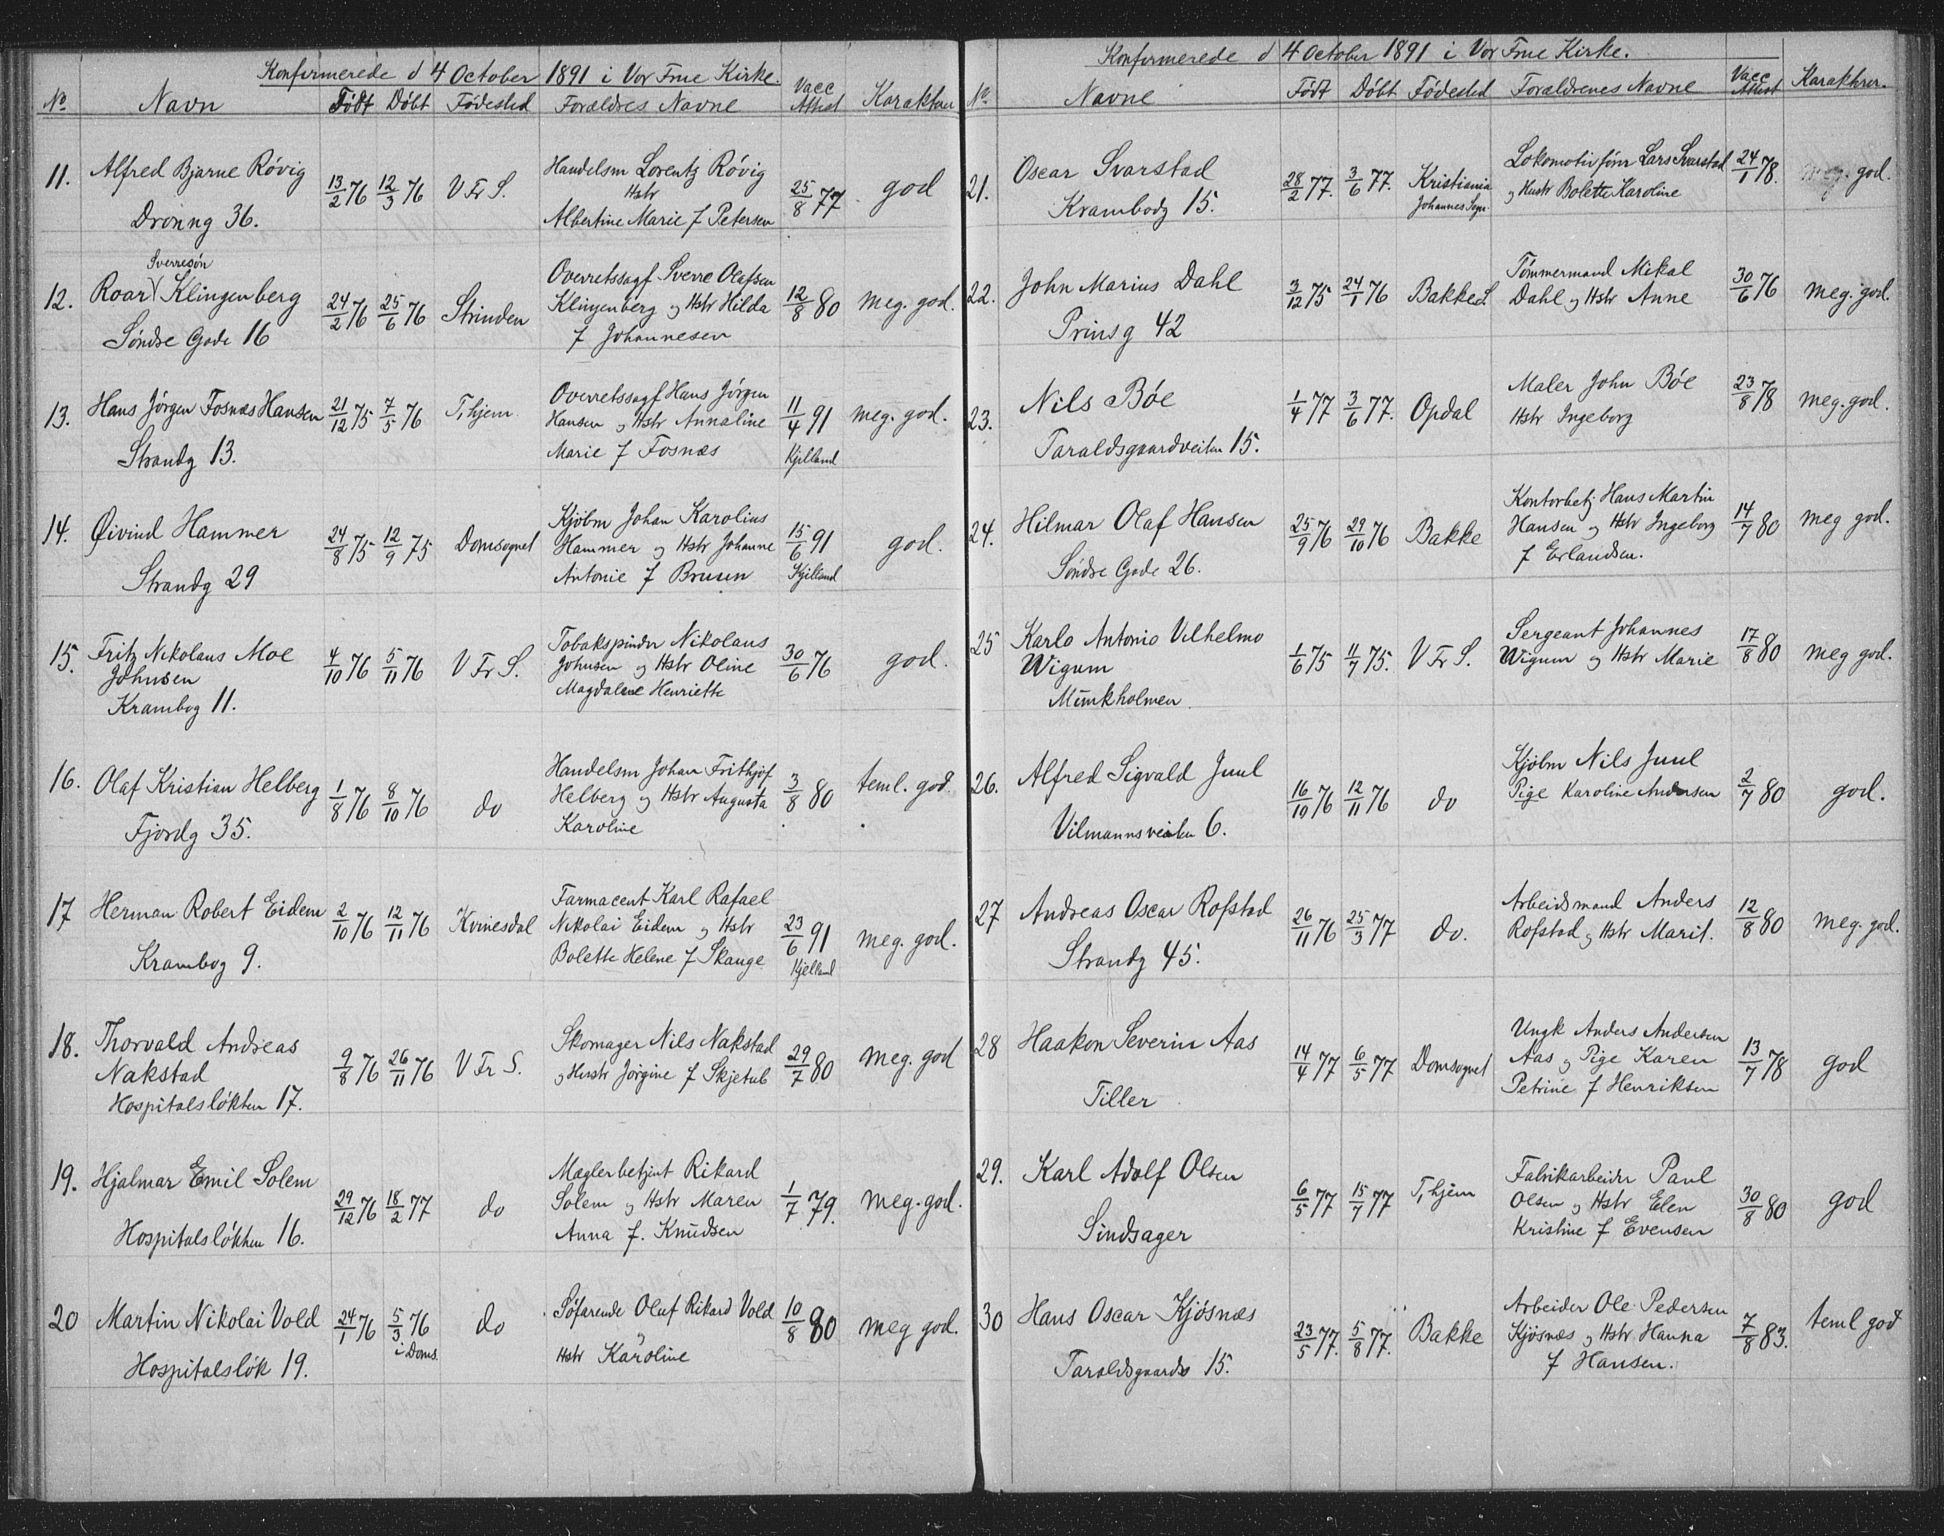 Konfirmerede d 4 October 1891 i Vor Frue Kirke.
No Navn Født Døbt Fødested Forældres Navne Vacc Attest Karakter
11. Alfred Bjarne Røvig 13/2 76 12/3 76 V Fr S. Handelsm Lorentz Røvig 25/8 77 god
Hstr
Dronng 36. Albertine Marie f Petersen
Sverresøn
12. Roar Klingenberg 24/2 76 25/6 76 Strinden Overretssagf Sverre Olafsen 12/8 80 meg. god.
Søndre Gade 16 Klingenberg og Hstr Hilda
f Johannesen
13. Hans Jörgen Fosnæs Hansen 21/12 75 7/5 76 T,hjem. Overretssagf Hans Jörgen 11/4 91 meg. god.
Hansen og Hstr Annaline
Strandg 13. Marie f Fosnæs Kjelland
14. Øivind Hammer 24/8 75 12/9 75 Domsognet Kjøbm Johan Karolius 15/6 91 god.
Hammer og Hstr Johanne
Strandg 29 Antonie f Bruun Kjelland
15. Fritz Nikolaus Moe 4/10 76 5/11 76 V Fr S. Tobakspinder Nikolaus 30/6 76 god.
Johnsen Johnsen og Hstr Oline
Krambog 11. Magdalene Henriette
16. Olaf Kristian Helberg 1/8 76 8/10 76 do Handelsm Johan Frithjof 3/8 80 teml. god.
Helberg og Hstr Augusta
Fjordg 35. Karoline
17 Herman Robert Eidem 2/10 76 12/11 76 Kvinesdal Farmacent Karl Rafael 23/6 91 meg. god.
Nikolai Eidem og Hstr
Krambog 9. Bolette Helene f Skauge Kjelland
18. Thorvald Andreas 9/8 76 26/11 76 V Fr S. Skomager Nils Nakstad 29/7 80 meg. god
Nakstad og Hustr Jörgine f Skjetub
Hospitalsløkken 17.
19. Hjalmar Emil Solem 29/12 76 18/2 77 do Mæglerbetjnt Rikard 1/7 79. meg. god.
Solem og Hstr Maren
Hospitalsløkken 16. Anna f. Knudsen
20 Martin Nikolai Vold 24/1 76 5/3 76 do Søfarende Oluf Rikard Vold 10/8 80 meg god.
i Doms. og
Hospitalsløk 19. Hstr Karoline
Konfirmerede d 4 October 1891 i Vor Frue Kirke.
No. Navne Født Døbt Fødested Forældrenes Navne Vacc Attest Karakterer.
21. Oscar Svarstad 28/2 77. 3/6 77. Kristiania Lokomotivfører Lars Svarstad 24/1 78. meg. god.
Krambodg 15. Johannes Sogn. og Hustr Bolette Karoline
22. John Marius Dahl 3/12 75 24/1 76 Bakke S. Tømmermand Mikal 30/6 76 meg. god.
Prinsg 42 Dahl og Hstr Anne
23. Nils Bøe 1/4 77 3/6 77. Opdal Maler John Bøe 23/8 78 meg. god.
Taraldsgaardveiten 15. Hstr Ingeborg
24. Hilmar Olaf Hansen 25/9 76 29/10 76 Bakke Kontorbetj Hans Martin 14/7 80 meg god.
Hansen og Hstr Ingeborg
Søndre Gade 26. f Erlandsen.
25 Karlo Antonio Vilhelmo 1/6 75 11/7 75. V Fr S. Sergeant Johannes 17/8 80 meg god.
Wigum Wigum og Hstr Marie
Munkholmen
26. Alfred Sigvald Juul 16/10 76 12/11 76 do Kjøbm Nils Juul 2/7 80 god.
Pige Karoline Andersen
Vilmannsveiten 6.
27 Andreas Oscar Rofstad 26/11 76 25/3 77 do. Arbeidsmand Anders 12/8 80 meg. god.
Strandg 45. Rofstad og Hstr Marit.
28 Haakon Severin Aas 14/4 77 6/5 77 Domsognet Ungk Anders Andersen 13/7 78 god
Aas og Pige Karen
Tiller Petrine f Henriksen
29. Karl Adolf Olsen 6/5 77 15/7 77 T,hjem Fabrikarbeider Paul 30/8 80 god
Olsen og Hstr Elen
Sindsager Kristine f Evensen
30 Hans Oscar Kjøsnæs 23/5 77. 5/8 77. Bakke Arbeider Ole Pedersen 7/8 83. teml god
Kjøsnæs og Hstr Hanna
Taraldsgaards 15. f Hansen.